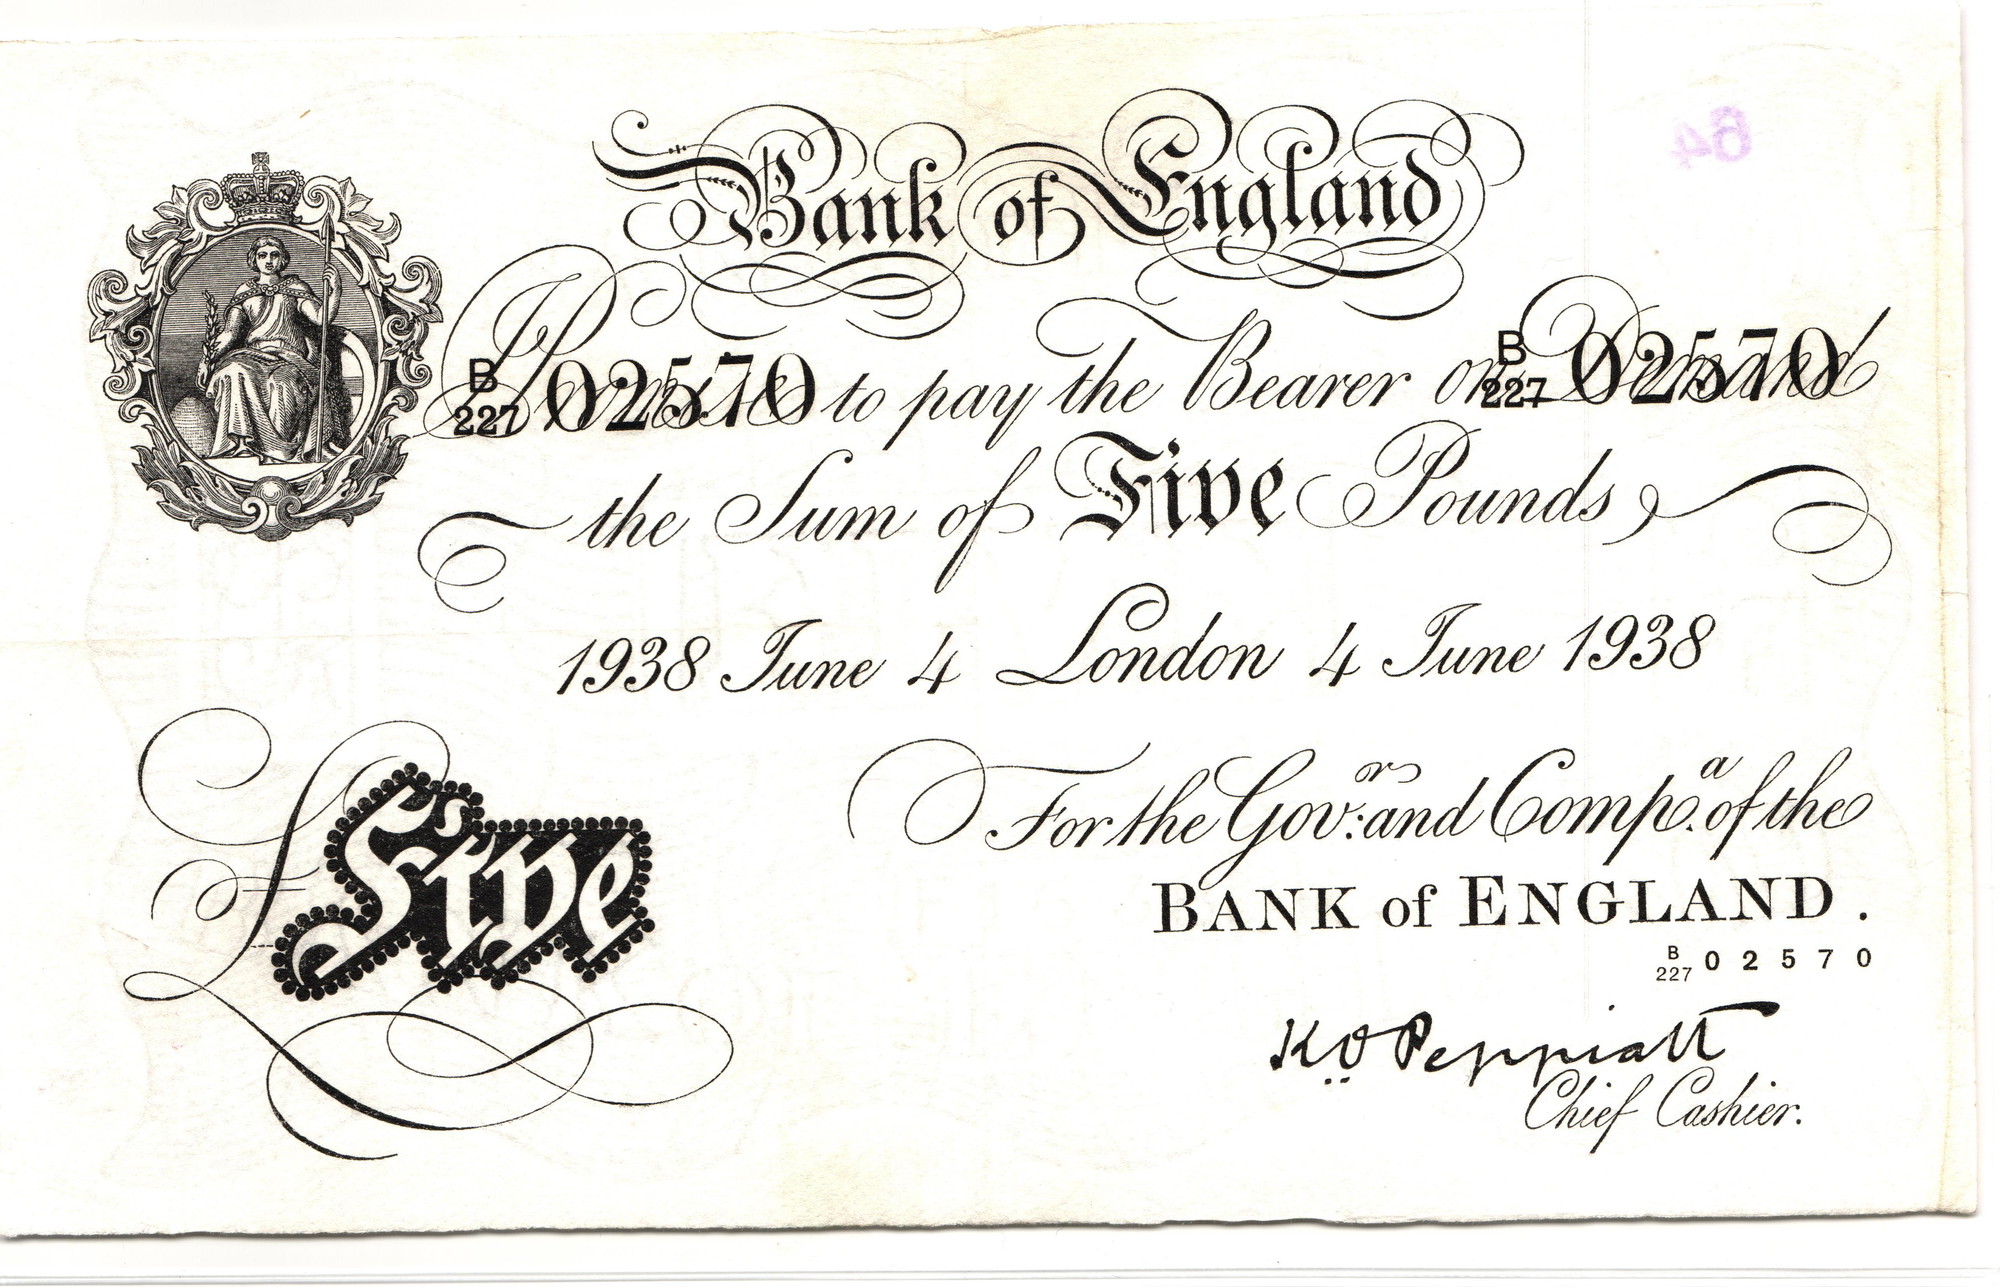 64
Bank of England
B
227 02570 I Promise to pay the Bearer on Demand B
227 02570
the Sum of Five Pounds
1938 June 4 London 4 June 1938
For the Gov.or and Comp.a of the
BANK of ENGLAND.
B
227 02570
K.O. Peppiatt
Chief Cashier.
£Five